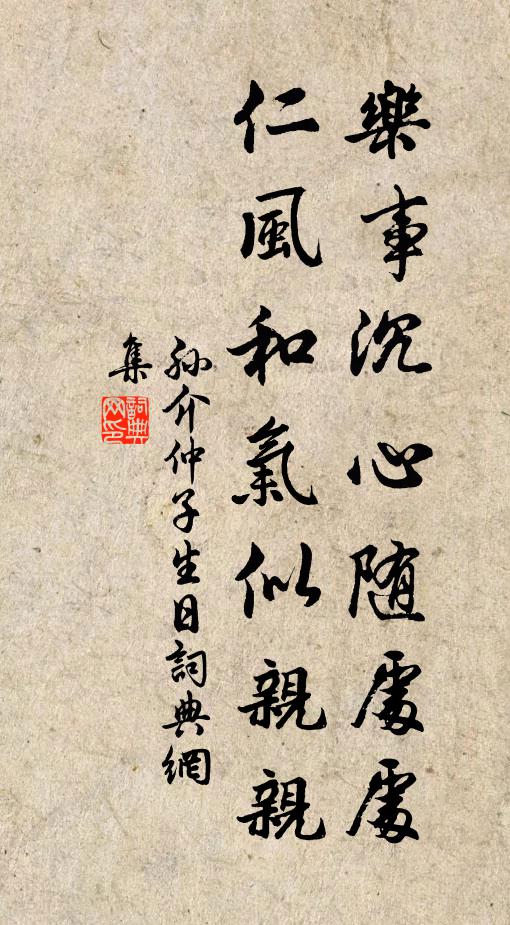 樂事沉心随處處
仁風和氣似親親
孫介仲子生日詞典網
集
詞典
网印